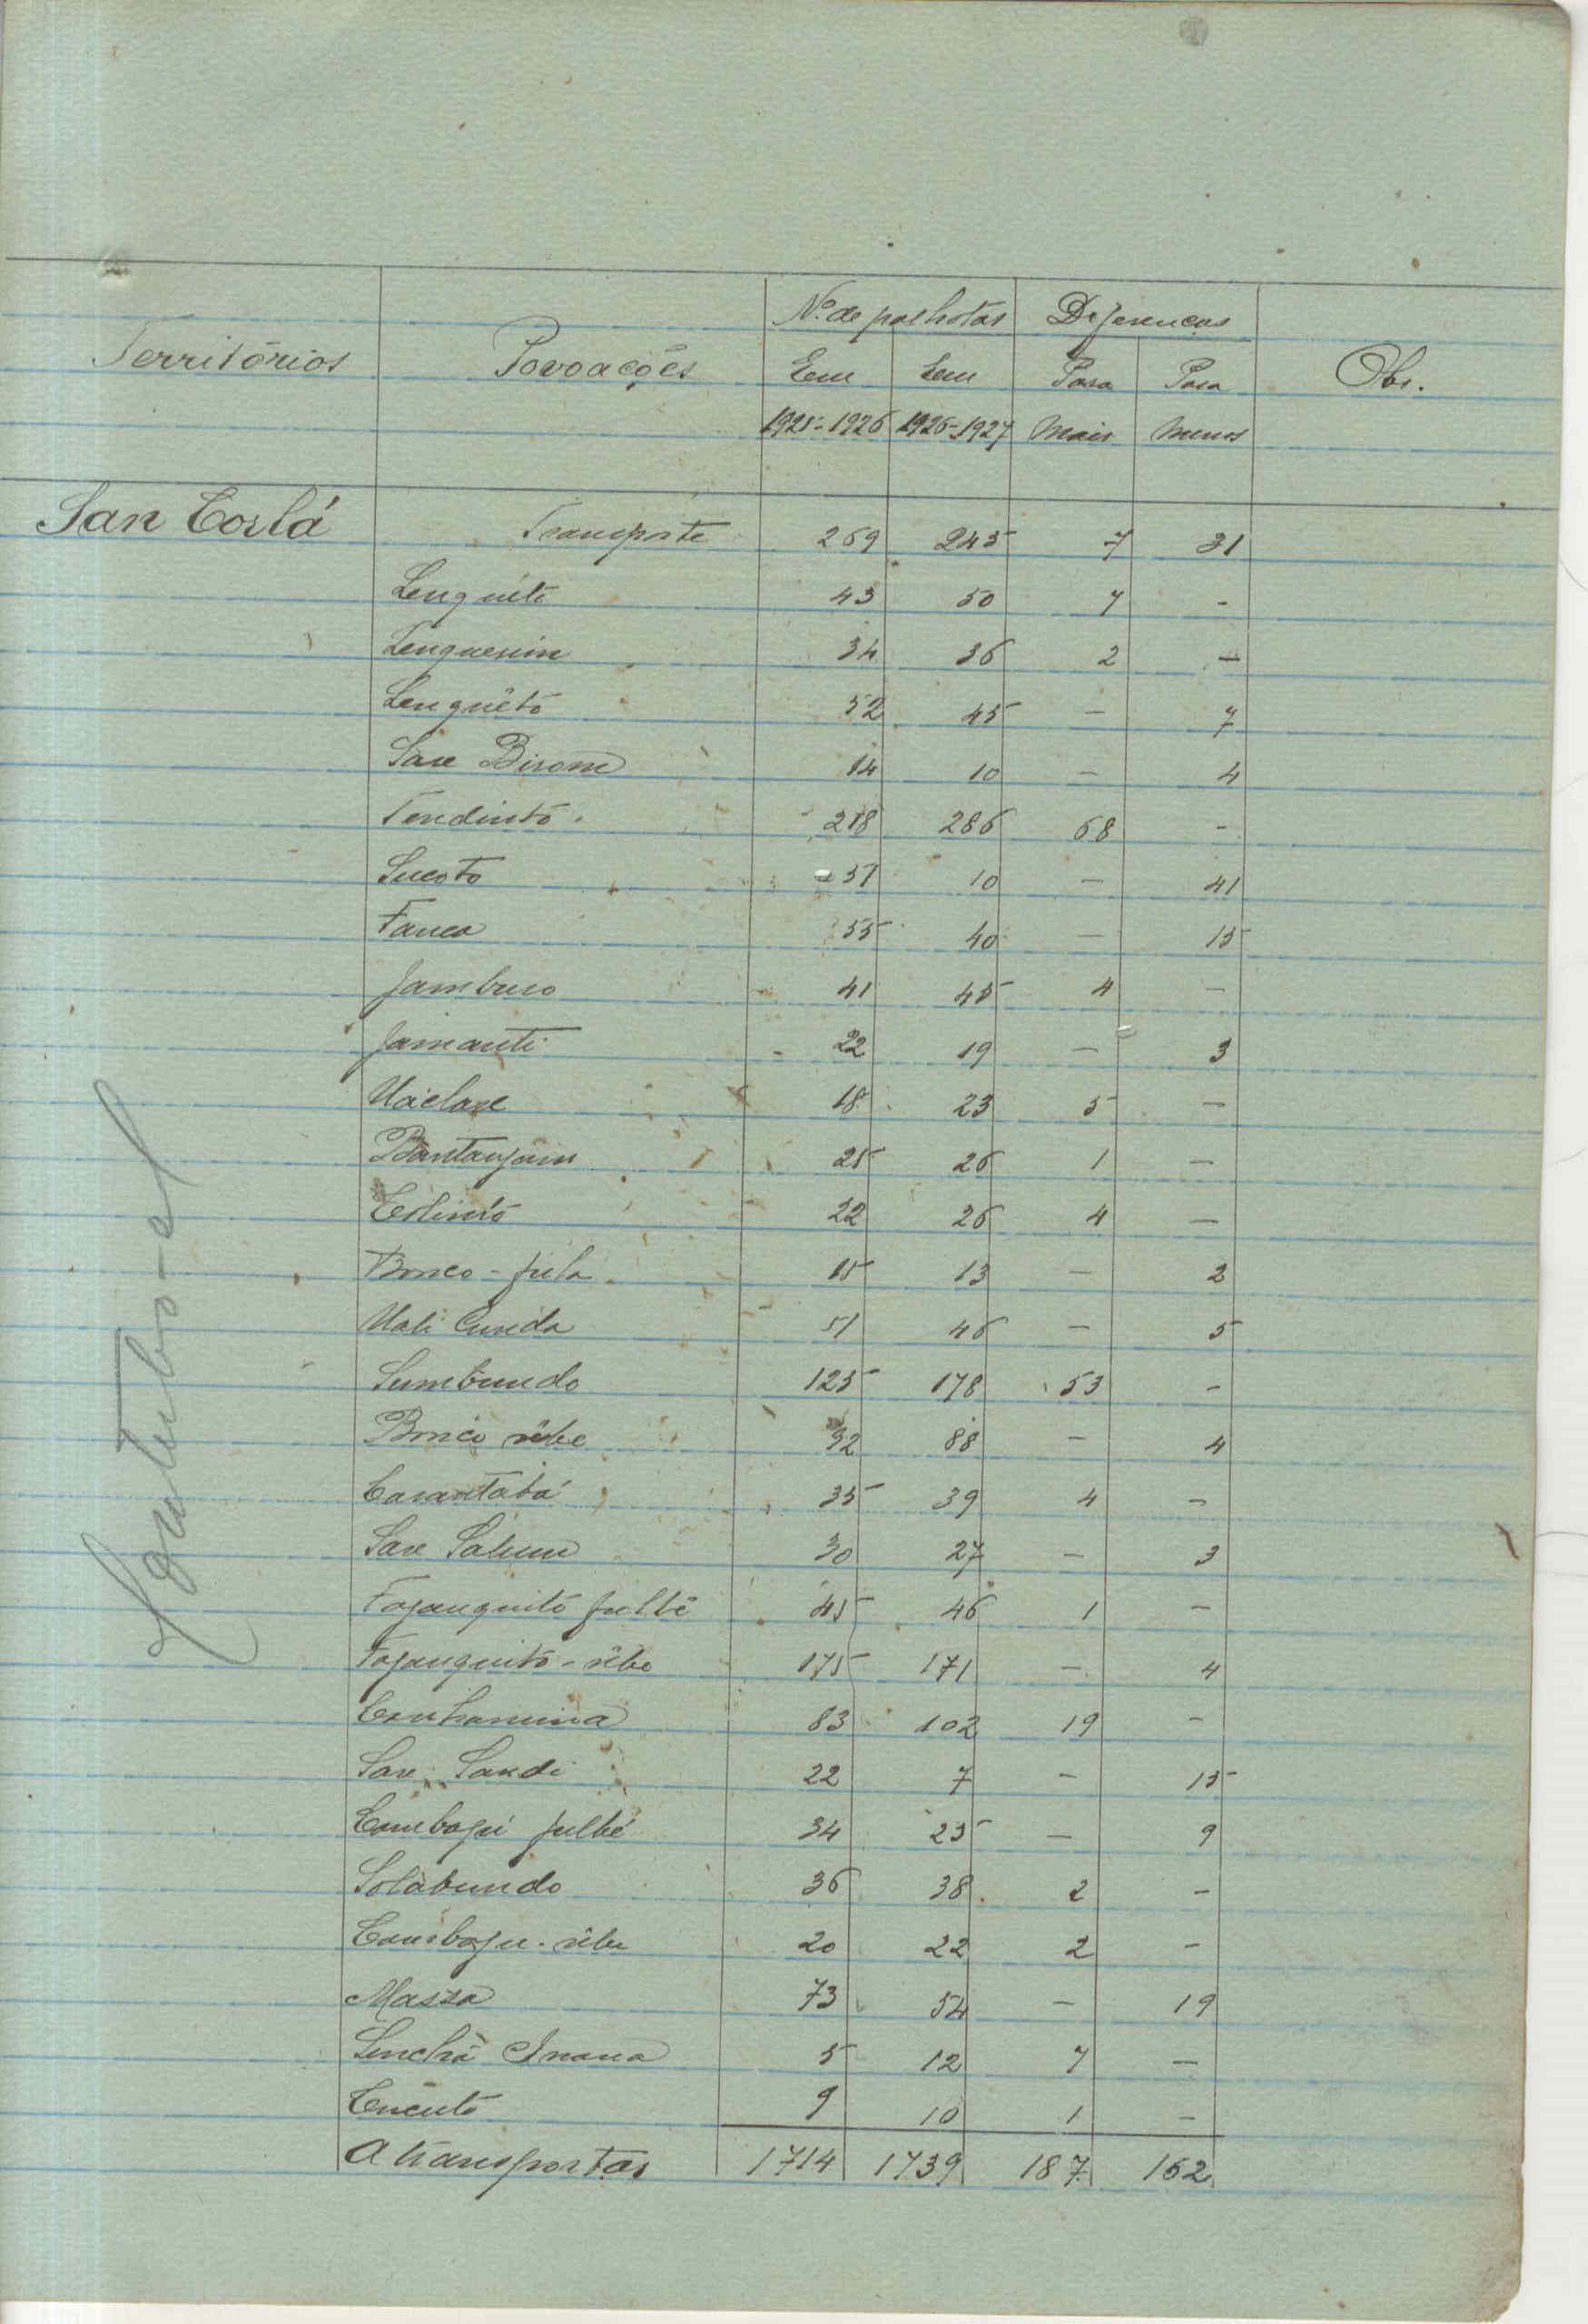 Territórios Povoações Nº de palhotas Diferenças Obs.
Em Em Para Para
1925-1926 1926-1927 Mais Menos
San Corlá Transporte 269 245 7 31
Lenquéti 43 50 7 -
Lenquerim 34 36 2 -
Lenquêtó 52 45 - 7
Sare Birom 14 10 - 4
Tendintó 218 286 68 -
Sucoto 51 10 - 41
Fanca 55 40 - 15
Jambuco 41 45 4 -
Jamanti 22 19 - 3
Uáclare 18 23 5 -
Bantanjam 25 26 1 -
22 26 4 -
Bonco-fula 15 13 - 2
Uali Cunda 51 46 - 5
Sumbundo 125 178 53 -
Bonco ribe 92 88 - 4
Carantabá 35 39 4 -
Sare Salium 30 27 - 3
Fajanquitó fulbé 45 46 1 -
Fajanquitó-ribe 175 171 - 4
Canhamina 83 102 19 -
Sare Sandi 22 7 - 15
Cambajú fulbé 34 25 - 9
Solabundo 36 38 2 -
Cambaju-ribe 20 22 2 -
Massa 73 54 - 19
Sinchã 5 12 7 -
Cucutó 9 10 1 -
A transportar 1714 1739 187 162